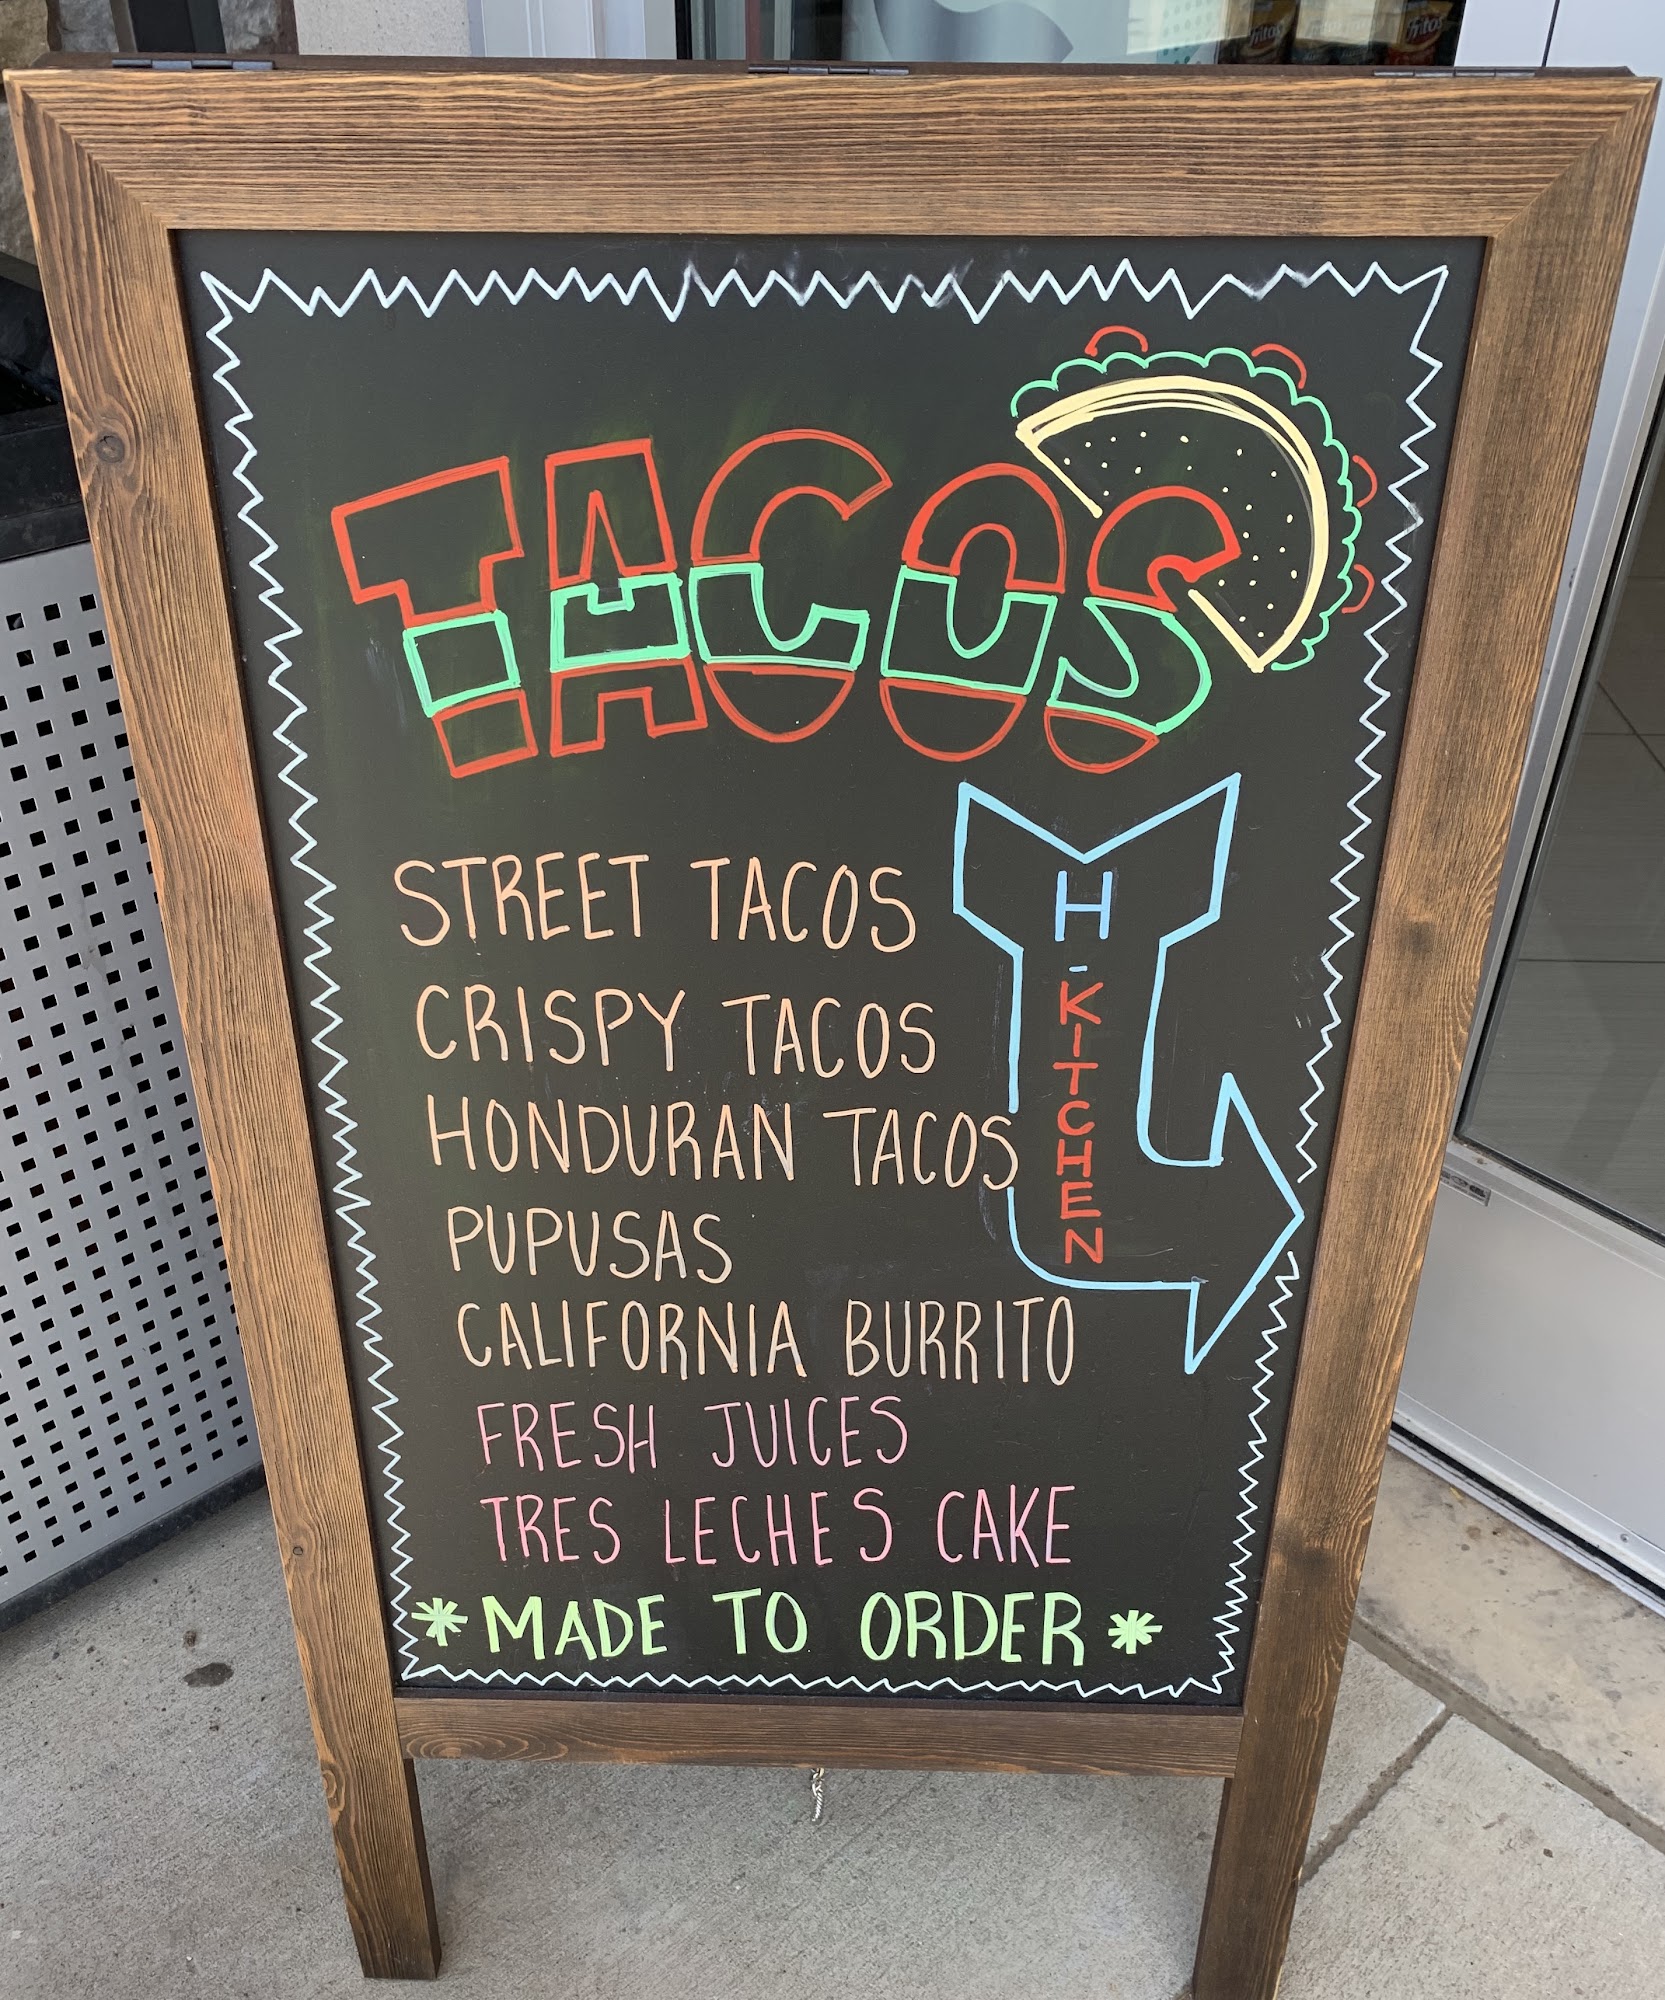 Fritos
Fritos
TACOS
H-KITCHEN
STREET TACOS
CRISPY TACOS
HONDURAN TACOS
PUPUSAS
CALIFORNIA BURRITO
FRESH JUICES
TRES LECHES CAKE
*MADE TO ORDER*